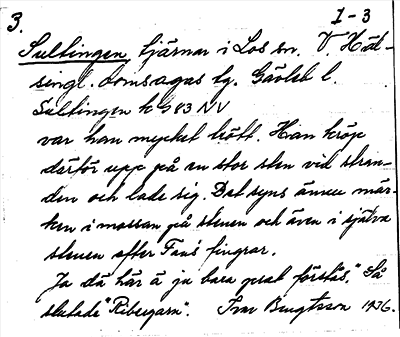 3. I-3
Sultingen, tjärnar i Los sn. V. Häl-
singl. domsagas tg. Gävleb l.
Sultingen k G 83 NV
var han mycket trött. Han kröp
därför upp på en stor sten vid stran-
den och lade sig. Det syns ännu mär-
ken i mossan på stenen och även i själva
stenen efter Fans fingrar.
Ja dä här ä ju bara prat förstås," Så
slutade "Ribergarn". Ivar Bengtsson 1936.